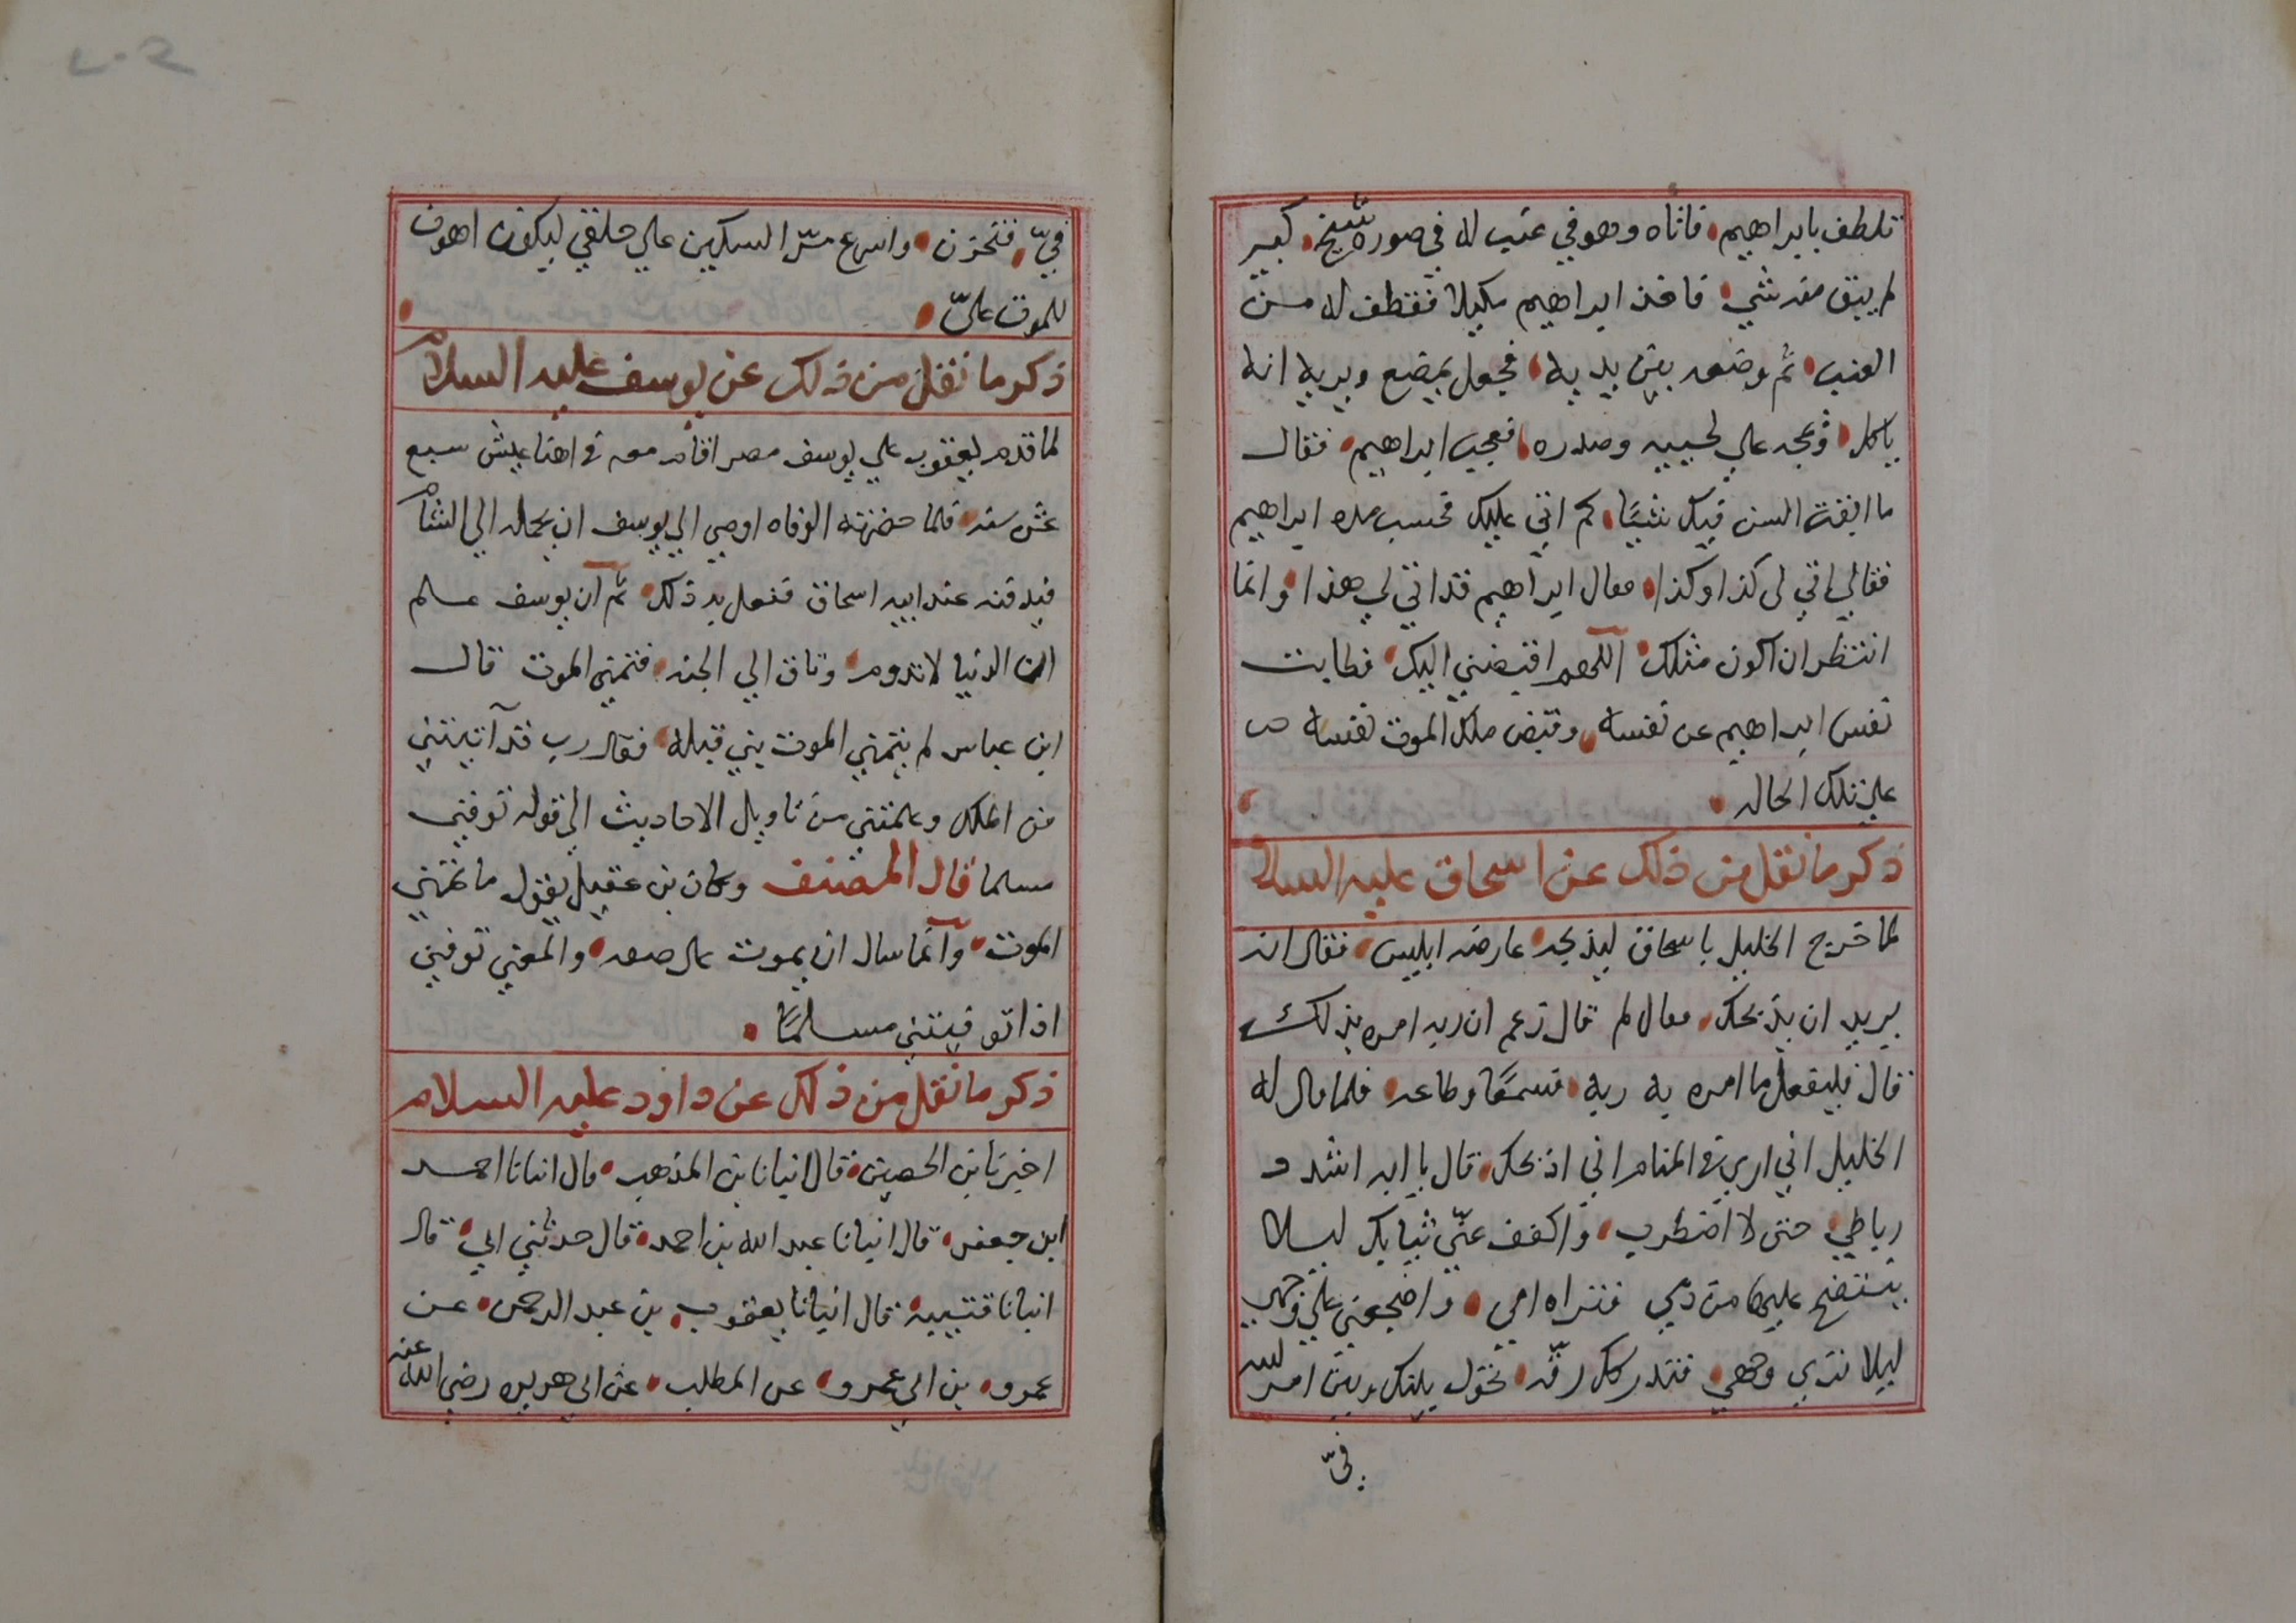 تلطف بابراهيم فاتاه وهو في عنب له في صوره شيخ كبير
لم يبق منه شي فاخذ ابراهيم مكيلا فقطف له من
العنب ثم وضعه بين يديه فجعل يمضغ ويريه انه
ياكل ويمجه علي لحييه وصدره فعجب ابراهيم فقال
ما ابقت السن فيك شيًا كم اتي عليك فحسب مده ابراهيم
فقال لي اتي لي كذا وكذا فقال ابراهيم قد اتي لي هذا وانما
انتظر ان اكون مثلك اللهم اقبضني اليك فطابت
نفس ابراهيم عن نفسه وقبض ملك الموت نفسه
علي تلك الحاله
ذكر ما نقل من ذلك عن اسحاق عليه السلا
لما خرج الخليل باسحاق ليذبحه عارضه ابليس فقال انه
يريد ان يذبحك فقال لم قال زعم ان ربه امره بذلك
قال فليفعل ما امره به ربه فسمعًا وطاعه فلما قال له
الخليل اني اري في المنام اني اذبحك قال يا ابه اشدد
رباطي حتى لا اضطرب واكفف عنّي ثيابك ليلا
ينتضح عليها من دمي فتراه امي واضجعني علي وجهي
ليلا تري وجهي فتدركك رقّه تحول بينك وبين امر الله
فيّ
فيّ فتحزن واسرع مرّ السكين علي حلقي ليكون اهون
للموت عليّ
ذكر ما نقل من ذلك عن يوسف عليه السلام
لما قدم يعقوب علي يوسف مصر اقام معه في اهنا عيش سبع
عشر سنه فلما حضرته الوفاه اوصي الي يوسف ان يحمله الي الشام
فيدفنه عند ابيه اسحاق ففعل به ذلك ثم ان يوسف علم
ان الدنيا لا تدوم وتاق الي الجنه فتمني الموت قال
ابن عباس لم يتمني الموت بني قبله فقال رب قد آتيتني
من الملك وعلمتني من تاويل الاحاديث الي قوله توفني
مسلما قال المصنف وكان بن عقيل يقول ما تمني
الموت وانما سال ان يموت على صفه والمعني توفني
اذا توفيتني مسلمًا
ذكر ما نقل من ذلك عن داود عليه السلام
اخبرنا بن الحصين قال انبانا بن المذهب قال انبانا احمد
ابن جعفر قال انبانا عبد الله بن احمد قال حدثني ابي قال
انبانا قتيبه قال انبانا يعقوب بن عبد الرحمن عن
عمرو بن ابي عمرو عن المطلب عن ابي هريره رضي الله عنه